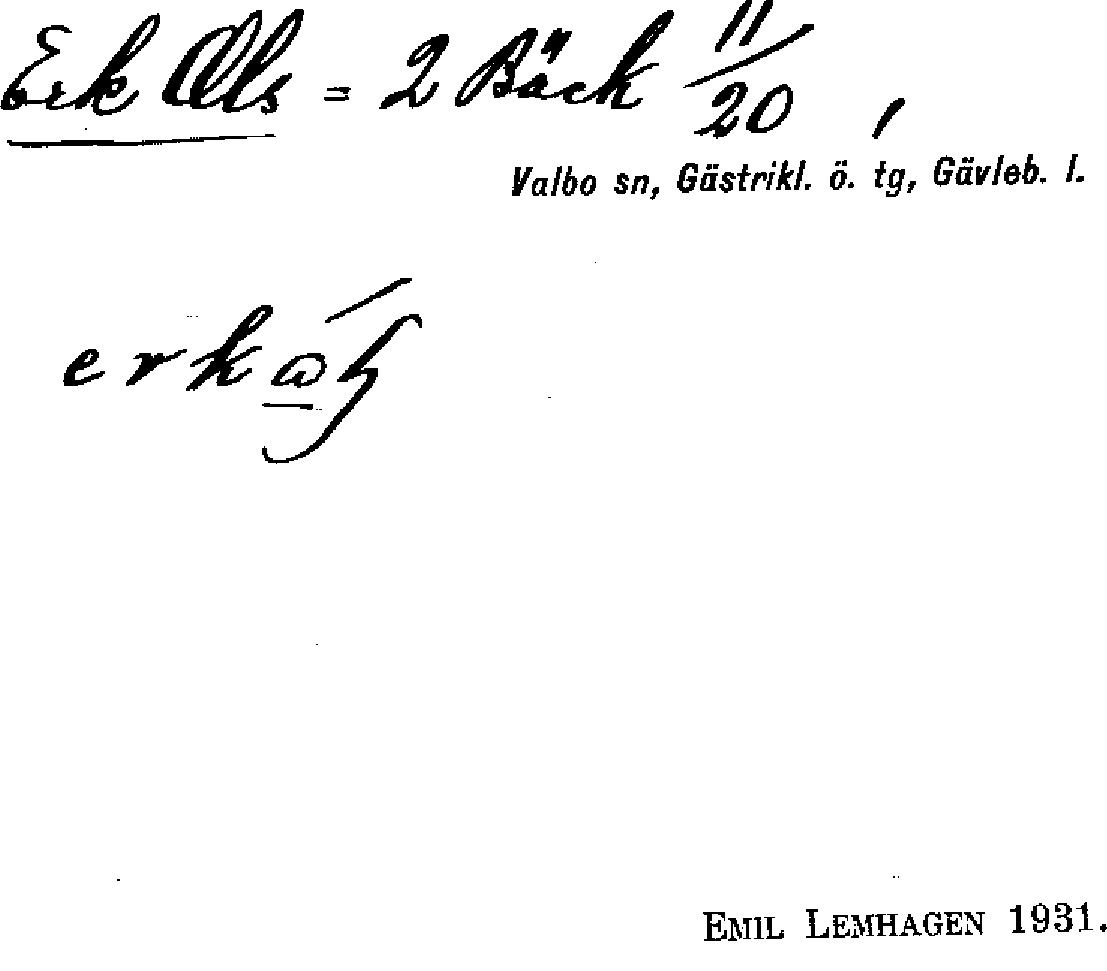 Erk Ols = 2 Bäck 11/20,
Valbo sn, Gästrikl. ö. tg, Gävleb. l.
EMIL LEMHAGEN 1931.